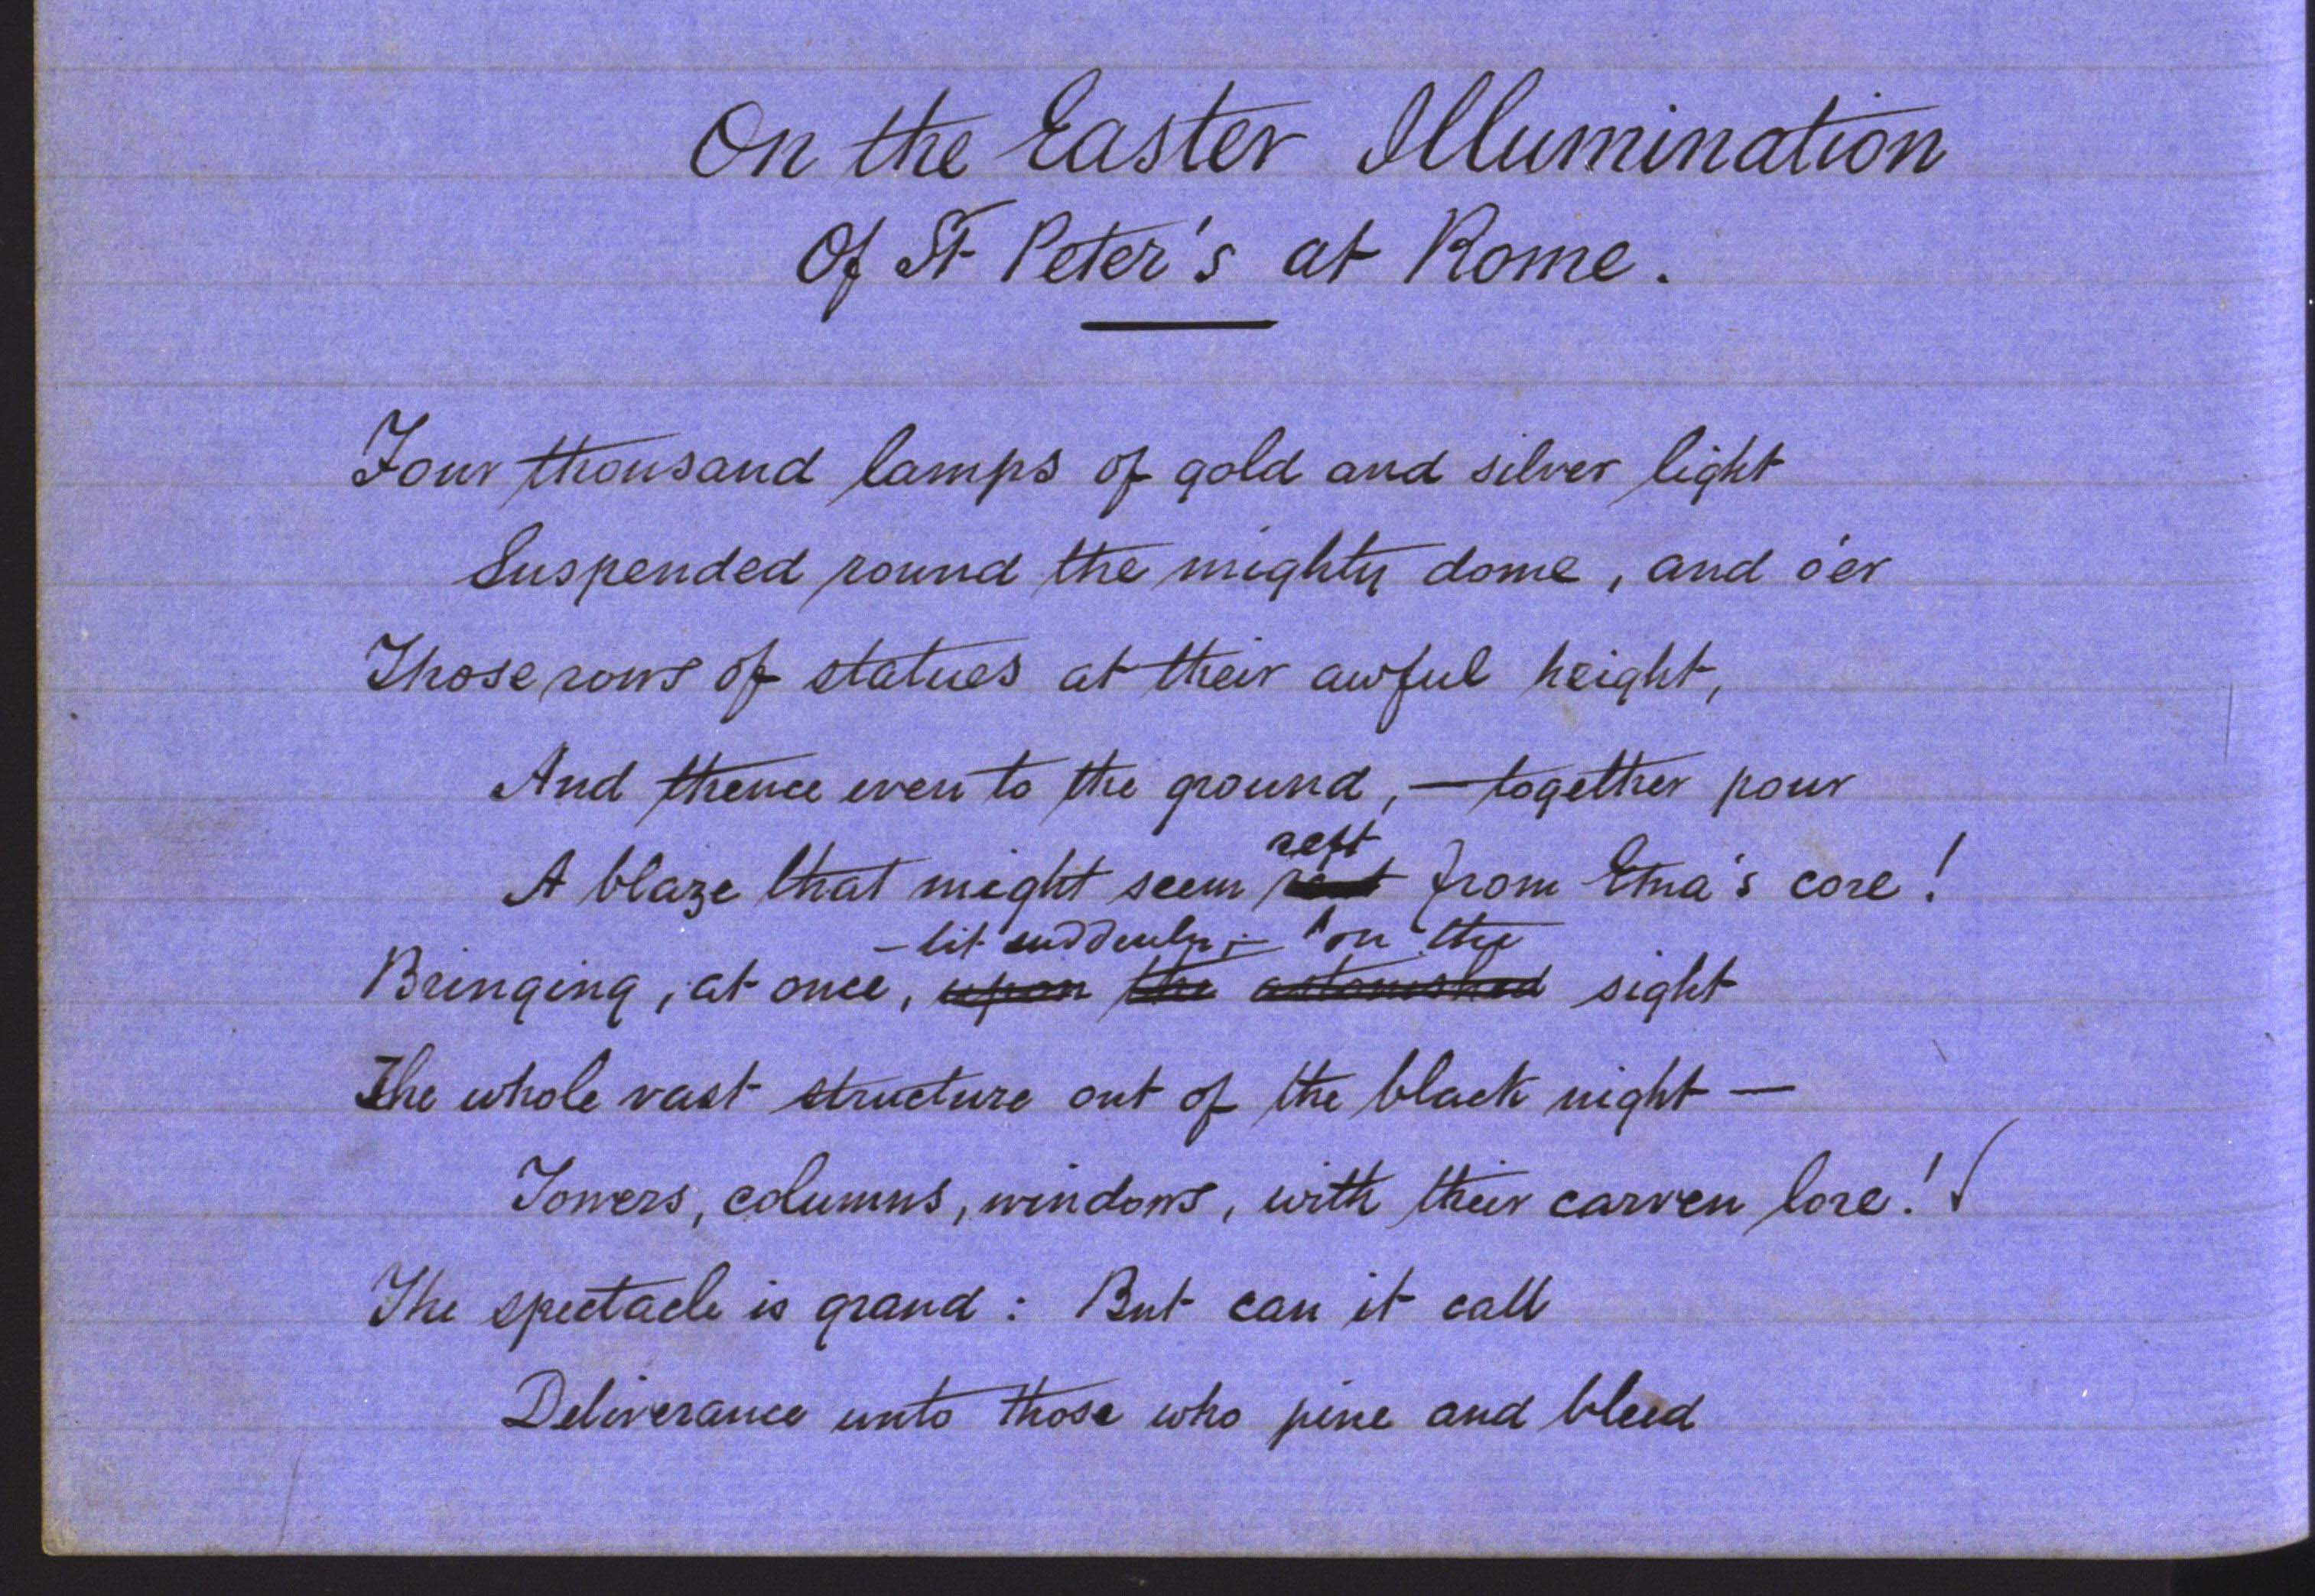 On the Easter Illumination
Of St Peter's at Rome.
Four thousand lamps of gold and silver light
Suspended round the mighty dome, and o'er
Those rows of statues at their awful height,
And thence even to the ground, — together pour
reft
A blaze that might seem from Etna's core!
— lit suddenly, — on the
Bringing, at once, upon the astonished sight
The whole vast structure out of the black night —
Towers, columns, windows, with their carven lore!
The spectacle is grand: But can it call
Deliverance unto those who pine and bleed